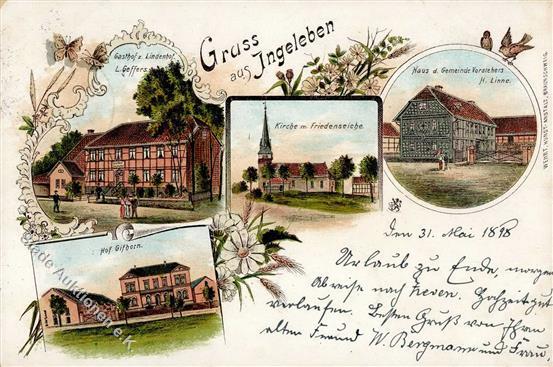 Gruss
aus Ingeleben
Gasthof z. Lindenhof.
L. Geffers.
Kirche m. Friedenseiche.
Haus d. Gemeinde Vorstehers
H. Linne.
Hof Gifhorn.
den 31. Mai 1898
Urlaub zu Ende, morgen
Abreise nach
verlaufen. Besten Gruß von Ihrem
alten Freund W. Bergmann und Frau.